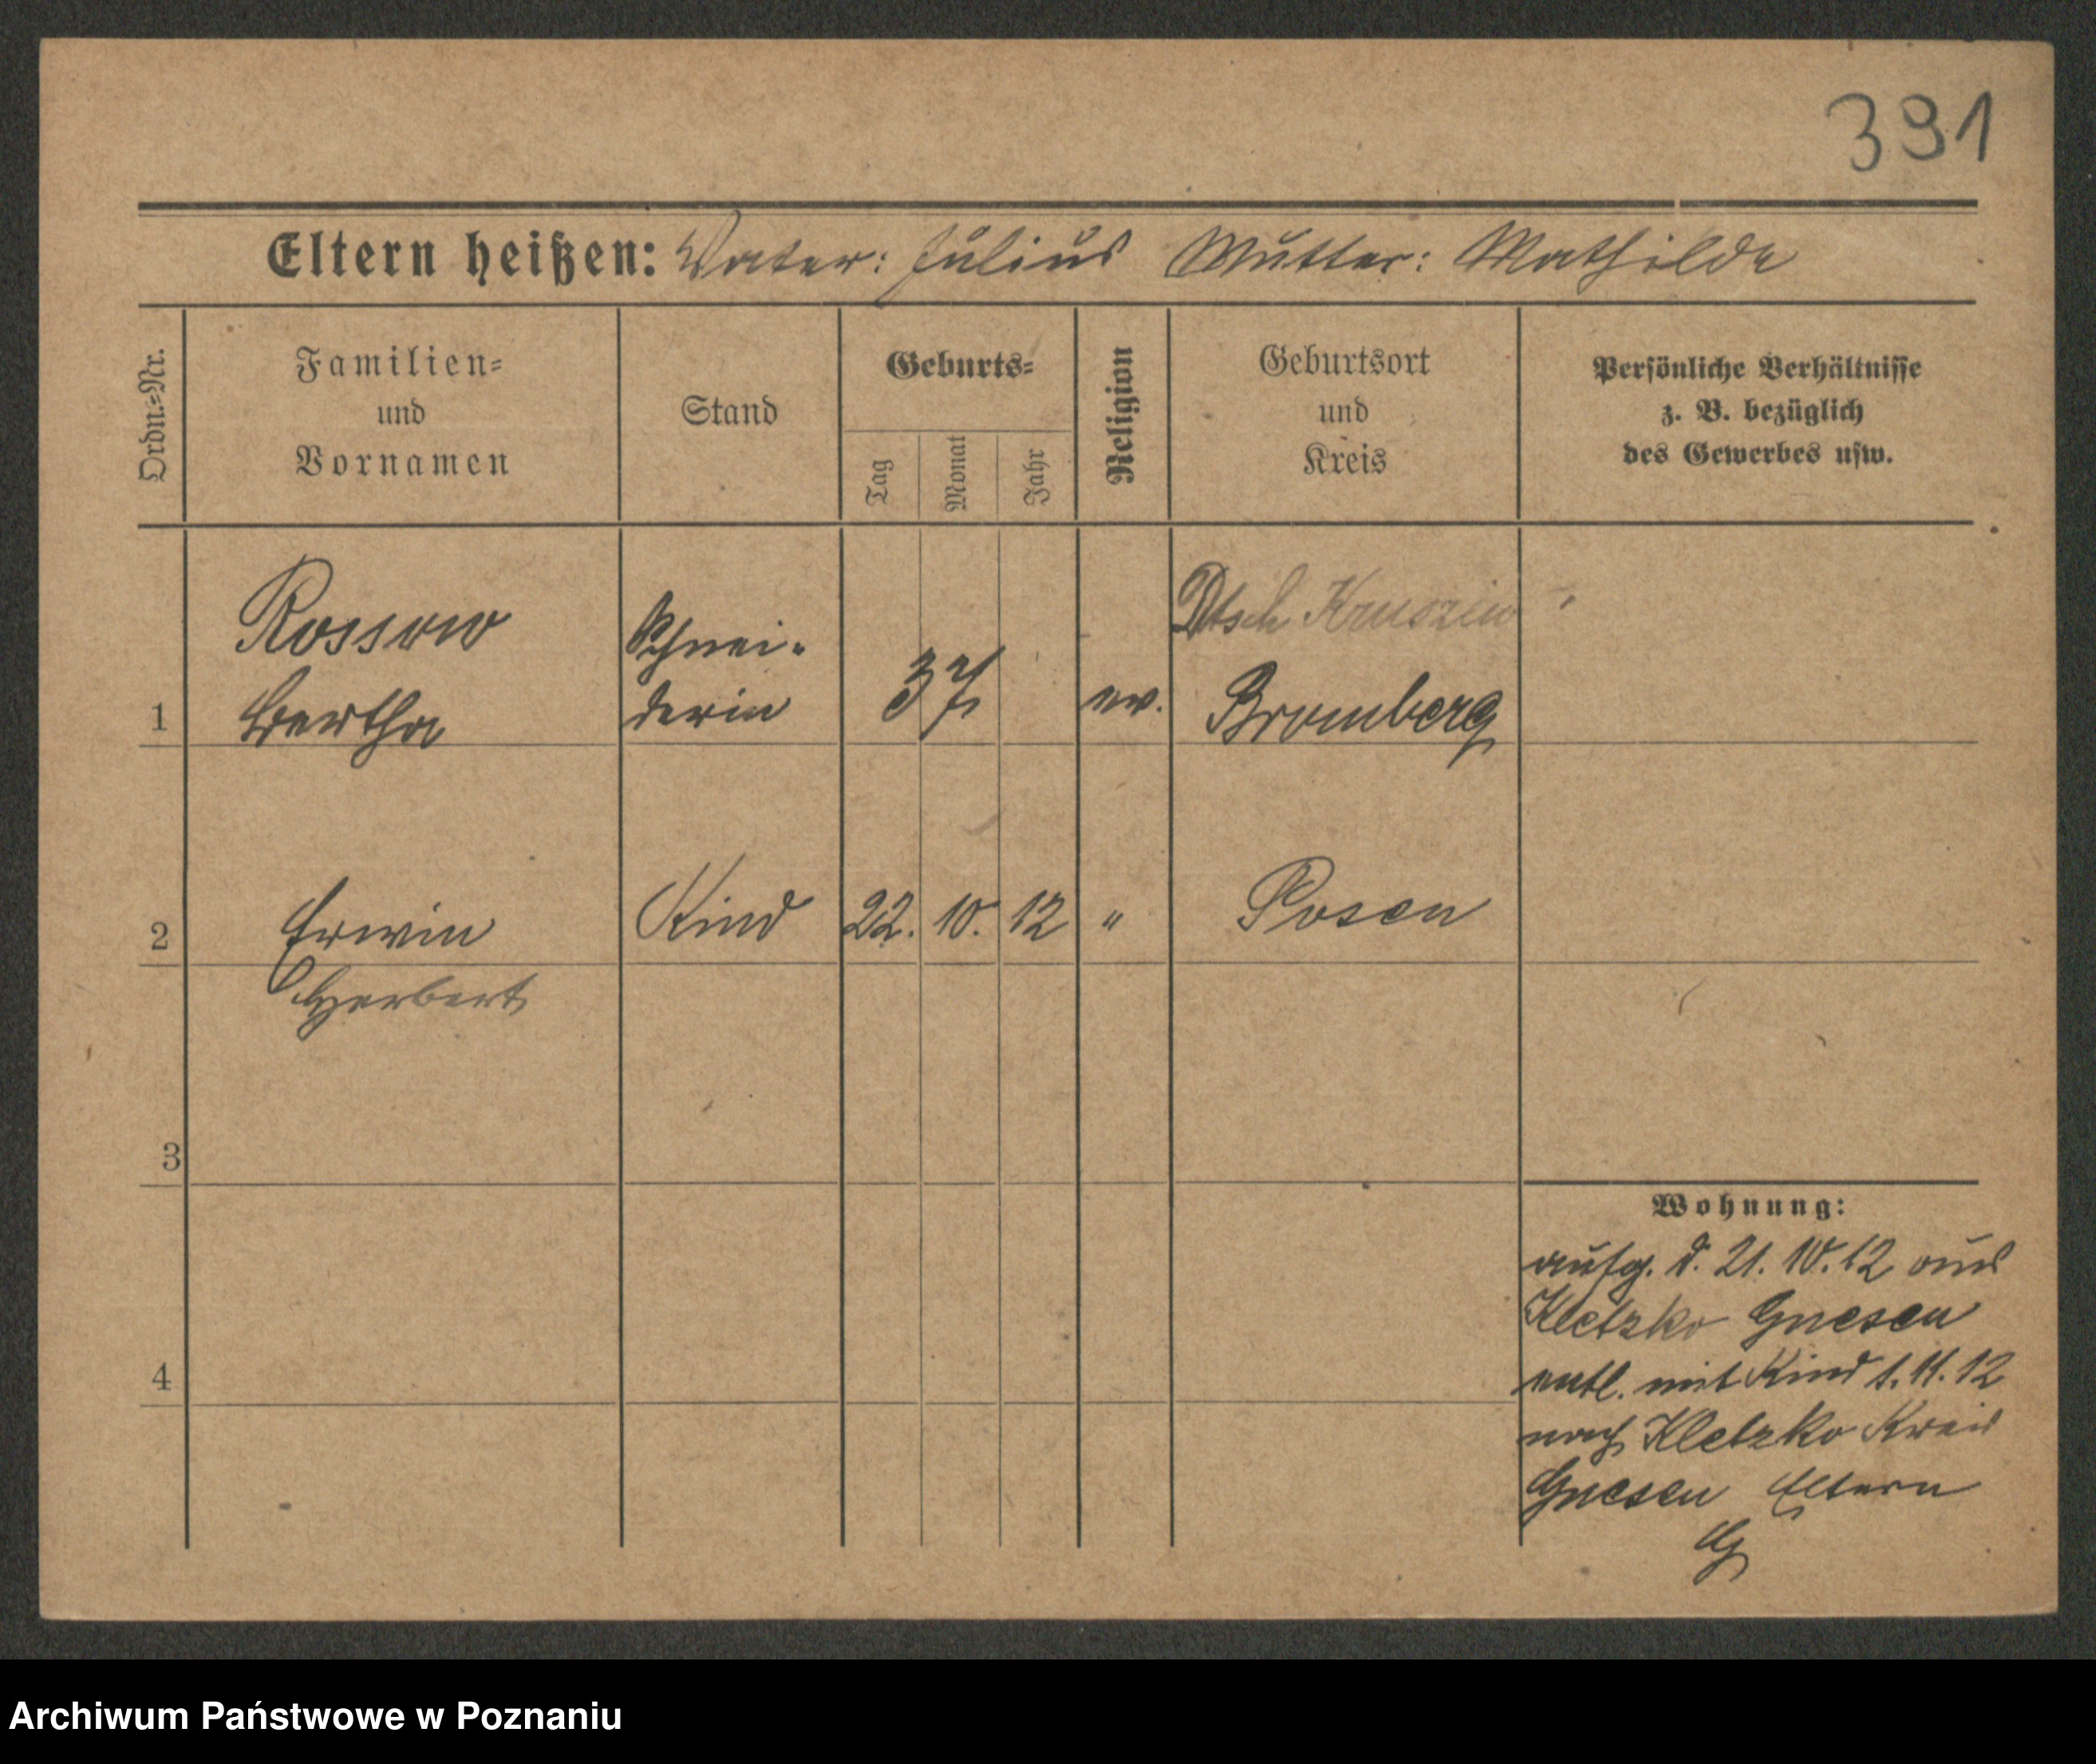 391
Eltern heißen: Vater: Julius Mutter: Mathilde
Ordn.-Nr.
Familien-
und
Vornamen
Stand
Geburts-
Tag
Monat
Jahr
Religion
Geburtsort
und
Kreis
Persönliche Verhältnisse
z. B. bezüglich
des Gewerbes usw.
1
Rossow
Bertha
Schnei-
derin
37
ev.
Dtsch Kruszin
Bromberg
2
Erwin
Herbert
Kind
22. 10. 12
"
Posen
3
4
Wohnung:
aufg. d. 21. 10. 12 aus
Kletzko Gnesen
entl. mit Kind 1. 11. 12
nach Kletzko Kreis
Gnesen Eltern
Archiwum Państwowe w Poznaniu